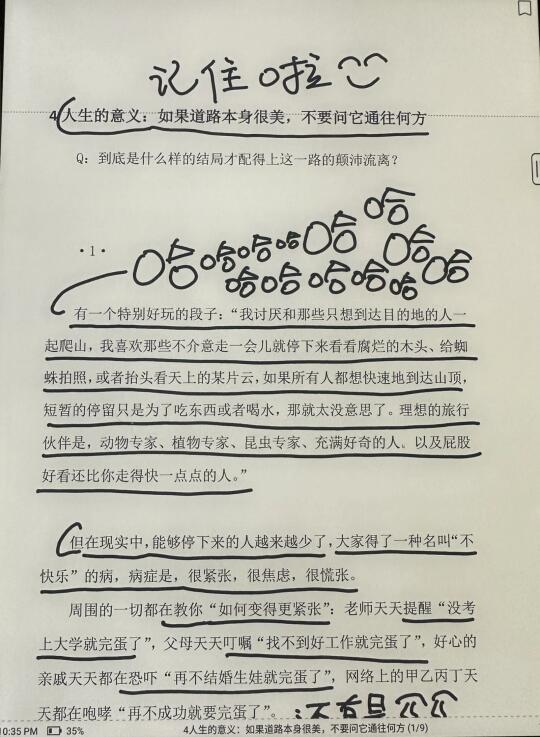 记住啦
4人生的意义：如果道路本身很美，不要问它通往何方
Q：到底是什么样的结局才配得上这一路的颠沛流离？
哈
哈哈哈哈哈哈
哈哈哈哈哈哈
·1·
有一个特别好玩的段子：“我讨厌和那些只想到达目的地的人一
起爬山，我喜欢那些不介意走一会儿就停下来看看腐烂的木头、给蜘
蛛拍照，或者抬头看天上的某片云，如果所有人都想快速地到达山顶，
短暂的停留只是为了吃东西或者喝水，那就太没意思了。理想的旅行
伙伴是，动物专家、植物专家、昆虫专家、充满好奇的人。以及屁股
好看还比你走得快一点点的人。”
但在现实中，能够停下来的人越来越少了，大家得了一种名叫“不
快乐”的病，病症是，很紧张，很焦虑，很慌张。
周围的一切都在教你“如何变得更紧张”：老师天天提醒“没考
上大学就完蛋了”，父母天天叮嘱“找不到好工作就完蛋了”，好心的
亲戚天天都在恐吓“再不结婚生娃就完蛋了”，网络上的甲乙丙丁天
天都在咆哮“再不成功就要完蛋了”。
10:35 PM 35% 4人生的意义：如果道路本身很美，不要问它通往何方 (1/9)